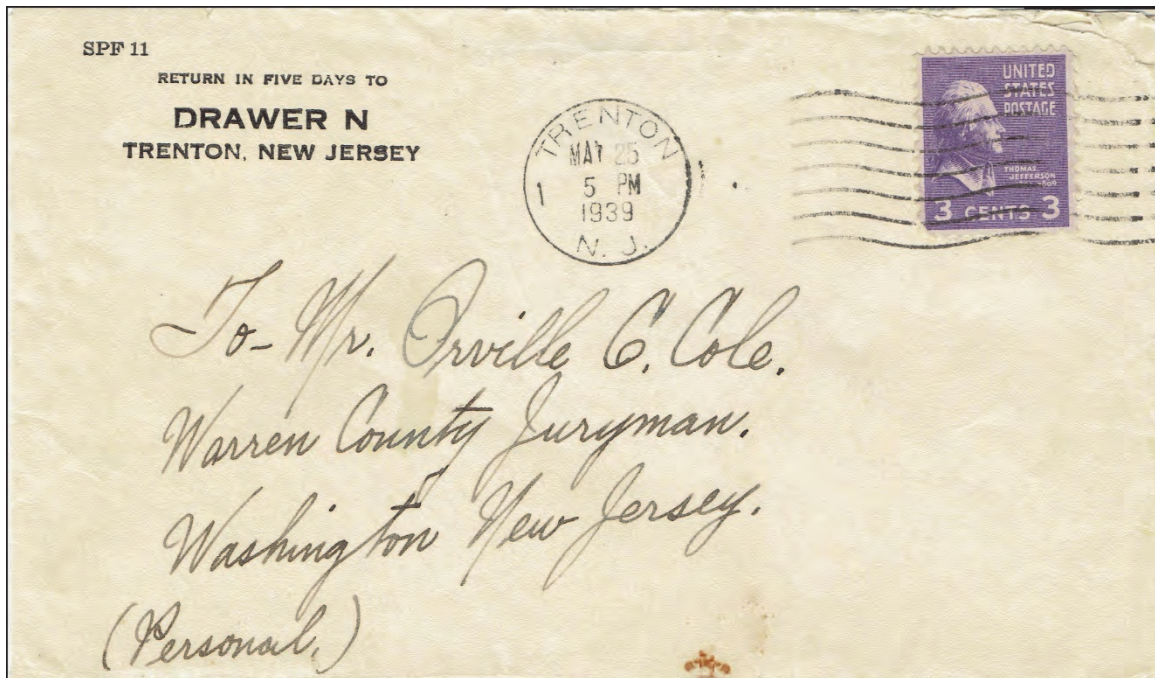 SPF 11
RETURN IN FIVE DAYS TO
DRAWER N
TRENTON, NEW JERSEY
TRENTON
MAY 25
1
5 PM
1939
N. J.
UNITED
STATES
POSTAGE
THOMAS
JEFFERSON
3 CENTS 3
To- Mr. Orville C. Cole.
Warren County Juryman.
Washington New Jersey.
(Personal.)